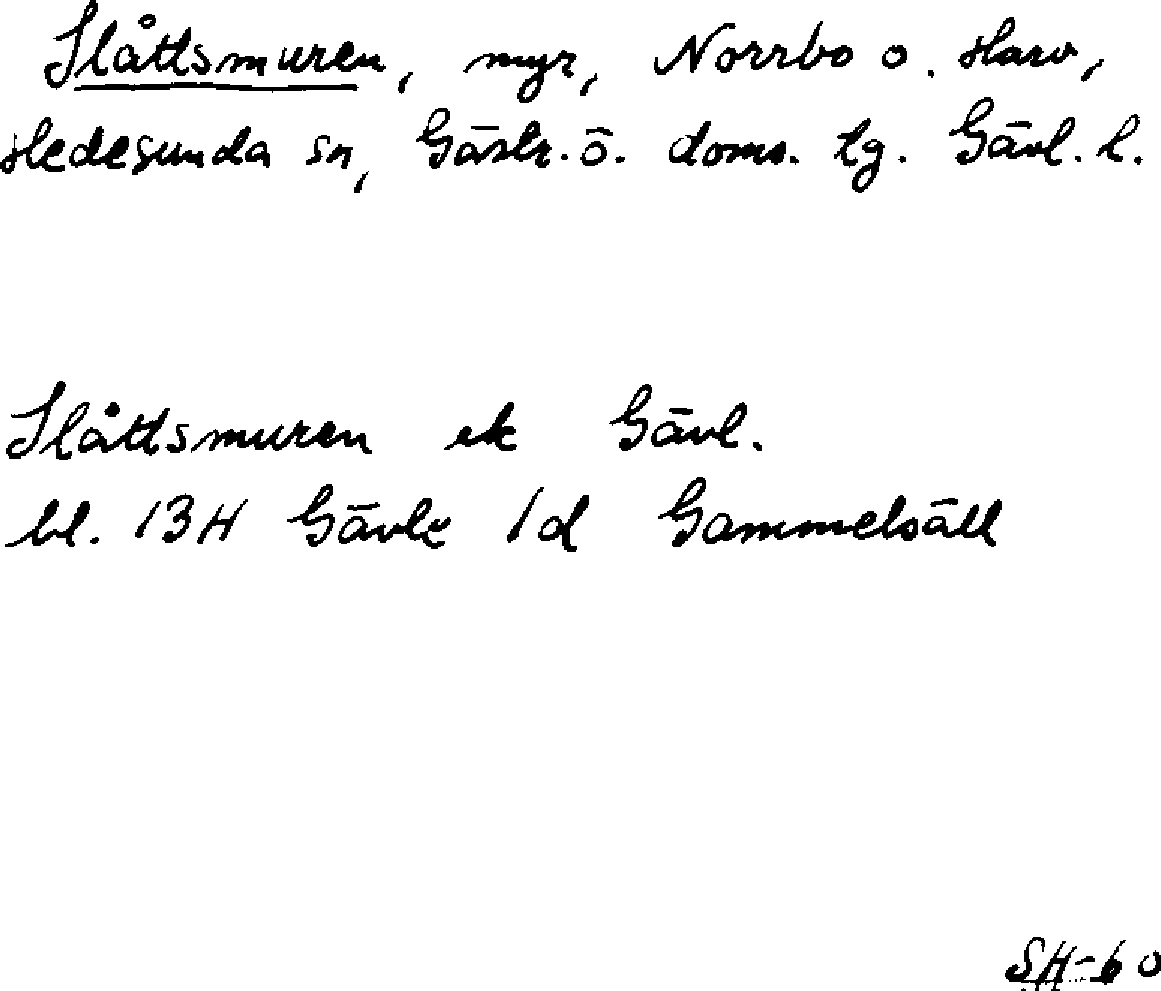 Slåttsmuren, myr, Norrbo o. Harv,
Hedesunda sn, Gästr. ö. doms. tg. Gävl. l.
Slåttsmuren ek Gävl.
bl. 13H Gävle 1d Gammelsäll
SH-60